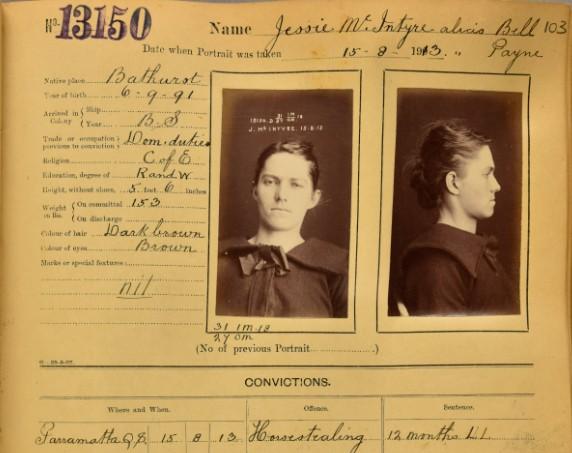 No. 13150 Name Jessie McIntyre alias Bell 103
Date when Portrait was taken 15-8-1913. " Payne
Native place Bathurst
Year of birth 6-9-91
Arrived in Colony { Ship
Year B.S
Trade or occupation previous to conviction } Dom. duties
Religion C of E
Education, degree of R and W
Height, without shoes, 5 feet 6 inches
Weight in lbs. { On committal 153
On discharge
Colour of hair Dark brown
Colour of eyes Brown
Marks or special features:
nil
13150. D
J. McINTYRE. 15-8-13
31 1m-18
27 0m
(No of previous Portrait )
CONVICTIONS.
Where and When. Offence. Sentence.
Parramatta Q.S 15 8 13 Horsestealing 12 months L.L